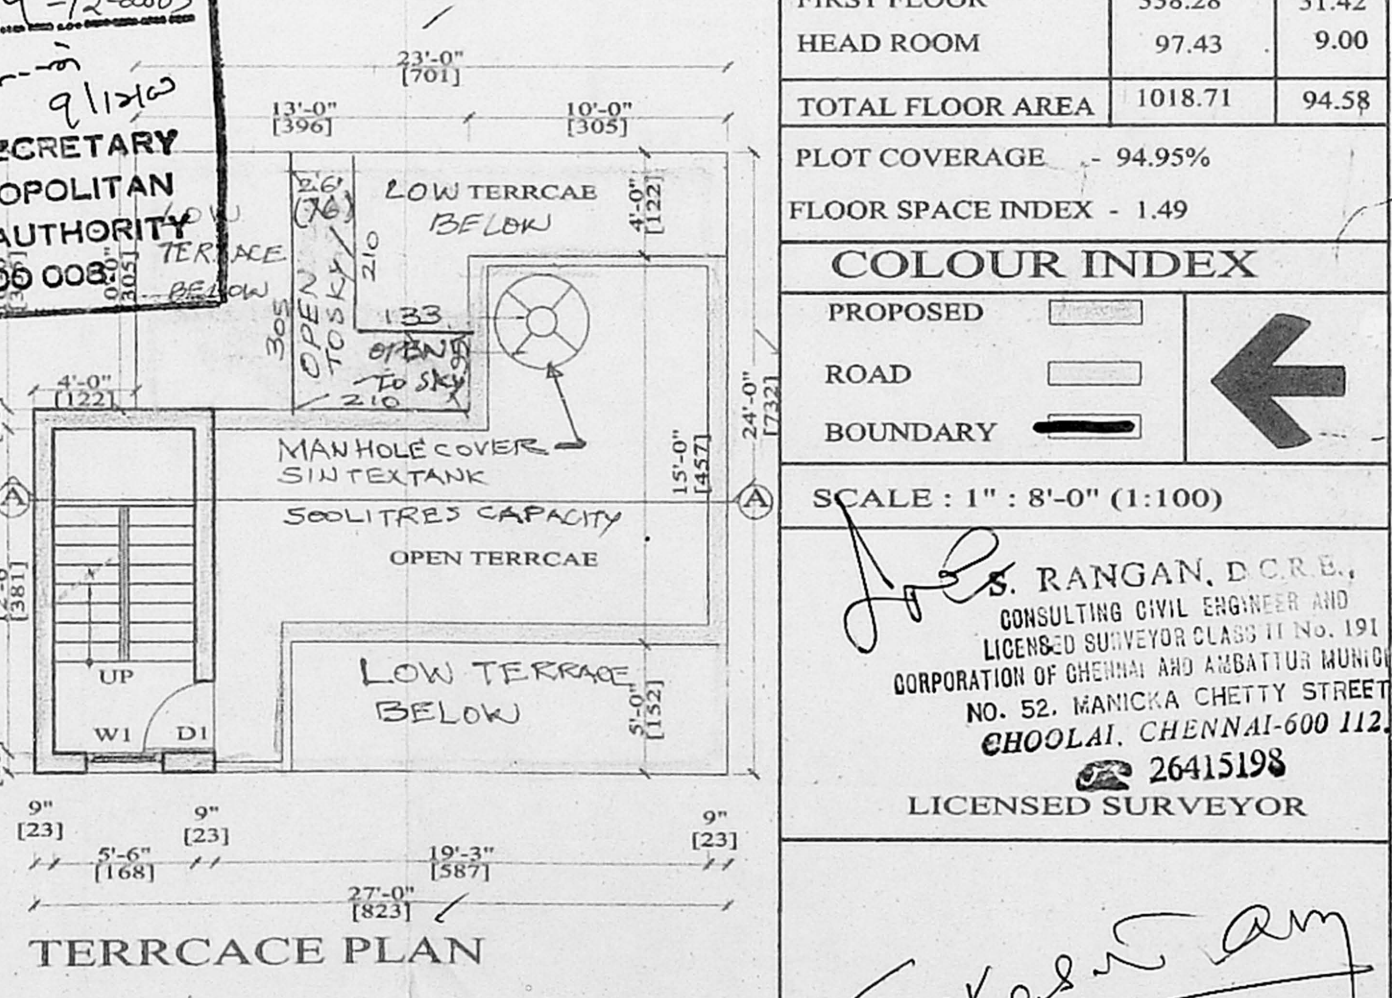 9/12/03
ECRETARY
OPOLITAN
AUTHORITY
00 008.
23'-0"
[701]
13'-0"
[396]
10'-0"
[305]
2'6"
(76)
LOW TERRCAE
BELOW
4'-0"
[122]
LOW
TERRACE
BELOW
305]
305
OPEN
TO SKY
210
133
OPEN
TO SKY
210
4'-0"
[122]
MANHOLE COVER
SINTEX TANK
500 LITRES CAPACITY
OPEN TERRCAE
15'-0"
[457]
24'-0"
[732]
A
A
[381]
UP
W1
D1
LOW TERRACE
BELOW
5'-0"
[152]
9"
[23]
9"
[23]
9"
[23]
5'-6"
[168]
19'-3"
[587]
27'-0"
[823]
TERRCACE PLAN
FIRST FLOOR 338.28 31.42
HEAD ROOM 97.43 9.00
TOTAL FLOOR AREA 1018.71 94.58
PLOT COVERAGE - 94.95%
FLOOR SPACE INDEX - 1.49
COLOUR INDEX
PROPOSED
ROAD
BOUNDARY
SCALE : 1" : 8'-0" (1:100)
S. RANGAN, D.C.R.E.,
CONSULTING CIVIL ENGINEER AND
LICENSED SURVEYOR CLASS II No. 191
CORPORATION OF CHENNAI AND AMBATTUR MUNICI
NO. 52, MANICKA CHETTY STREET
CHOOLAI, CHENNAI-600 112.
26415198
LICENSED SURVEYOR